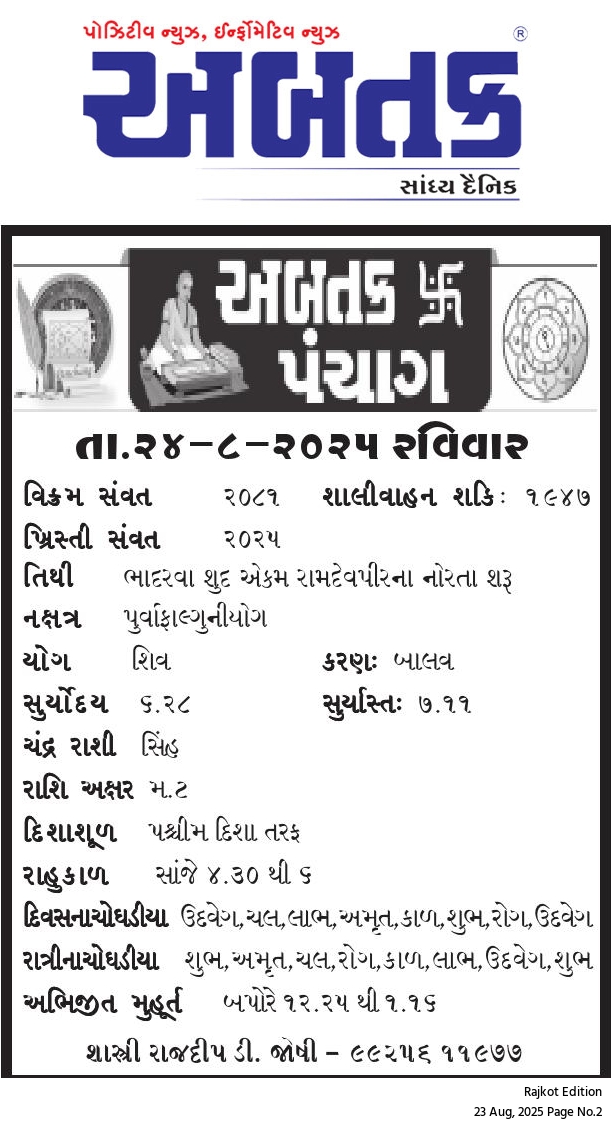 પોઝિટીવ ન્યુઝ, ઈન્ફોર્મેટિવ ન્યુઝ
અબતક ®
સાંધ્ય દૈનિક
અબતક 卐
પંચાગ
તા.૨૪-૮-૨૦૨૫ રવિવાર
વિક્રમ સંવત ૨૦૮૧ શાલીવાહન શકિ: ૧૯૪૭
ખ્રિસ્તી સંવત ૨૦૨૫
તિથી ભાદરવા શુદ એકમ રામદેવપીરના નોરતા શરૂ
નક્ષત્ર પુર્વાફાલ્ગુનીયોગ
યોગ શિવ કરણ: બાલવ
સુર્યોદય ૬.૨૮ સુર્યાસ્ત: ૭.૧૧
ચંદ્ર રાશી સિંહ
રાશિ અક્ષર મ.ટ
દિશાશૂળ પશ્ચીમ દિશા તરફ
રાહુકાળ સાંજે ૪.૩૦ થી ૬
દિવસનાચોઘડીયા ઉદવેગ,ચલ,લાભ,અમૃત,કાળ,શુભ,રોગ,ઉદવેગ
રાત્રીનાચોઘડીયા શુભ,અમૃત,ચલ,રોગ,કાળ,લાભ,ઉદવેગ,શુભ
અભિજીત મુહૂર્ત બપોરે ૧૨.૨૫ થી ૧.૧૬
શાસ્ત્રી રાજદીપ ડી. જોષી - ૯૯૨૫૬ ૧૧૯૭૭
Rajkot Edition
23 Aug, 2025 Page No.2